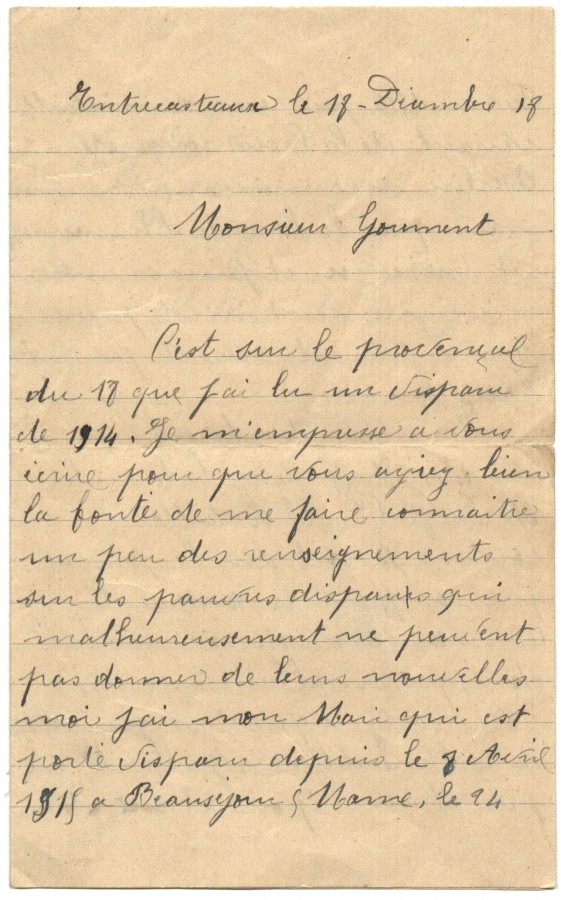 Entrecasteaux le 18 - Diembre 18
Monsieur Gourment
C'est sur le provençal
du 17 que j'ai lu un disparu
de 1914. Je m'empresse a vous
écrire pour que vous ayiez bien
la bonté de me faire connaitre
un peu des renseignements
sur les pauvres disparus qui
malheureusement ne peuvent
pas donner de leurs nouvelles
moi j'ai mon Mari qui est
porté disparu depuis le 8 Avril
1915 a Beauséjour (Marne, le 94